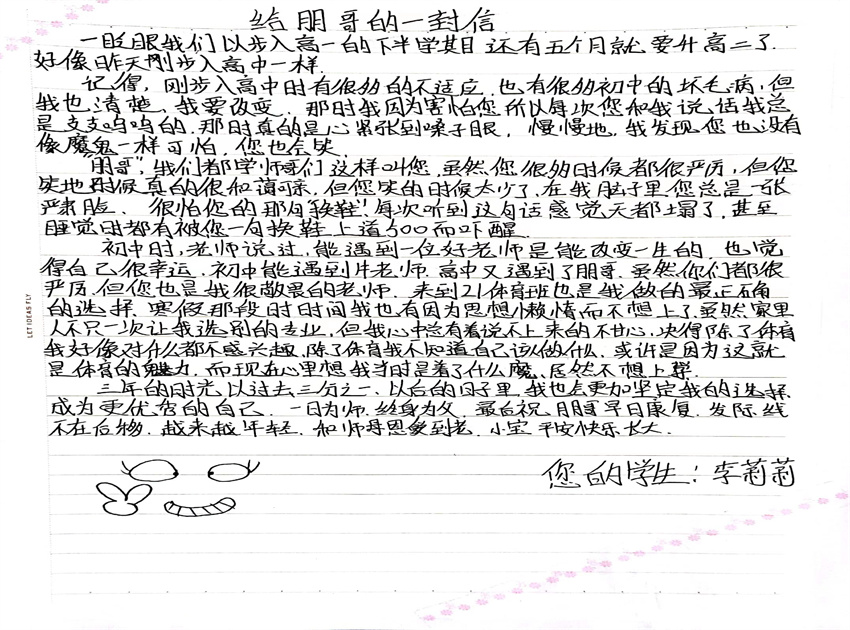 给朋哥的一封信
一眨眼我们以步入高一的下半学期 还有五个月就要升高二了
好像昨天刚步入高中一样.
记得, 刚步入高中时有很多的不适应. 也有很多初中的坏毛病, 但
我也清楚, 我要改变. 那时我因为害怕您所以每次您和我说话我总
是支支吾吾的. 那时真的是心紧张到嗓子眼, 慢慢地, 我发现您也没有
像魔鬼一样可怕, 您也会笑.
"朋哥", 我们都学师哥们这样叫您, 虽然您很多时候都很严厉, 但您
笑地时候真的很和蔼可亲, 但您笑的时候太少了, 在我脑子里您总是一张
严肃脸、 很怕您的那句"换鞋"! 每次听到这句话感觉天都塌了, 甚至
睡觉时都有被您一句换鞋上道300而吓醒.
初中时, 老师说过, 能遇到一位好老师是能改变一生的. 也觉
得自己很幸运. 初中能遇到片老师. 高中又遇到了朋哥. 虽然你们都很
严厉, 但您也是我很敬畏的老师. 来到21体育班也是我做的最正确
的选择. 寒假那段时时间我也有因为思想懒惰而不想上了, 虽然家里
人不只一次让我选别的专业, 但我心中总有着说不上来的不甘心, 决得除了体育
我好像对什么都不感兴趣, 除了体育我不知道自己该做什么. 或许是因为这就
是体育的魅力. 而现在心里想我当时是着了什么魔、居然不想上群.
三年的时光以过去三分之一. 以后的日子里. 我也会更加坚定我的选择.
成为更优秀的自己. 一日为师. 终身为父. 最后祝朋哥早日康复. 发际线
不在后移. 越来越年轻. 和师母恩爱到老. 小宝平安快乐长大.
您的学生: 李莉莉
LET IDEAS FLY